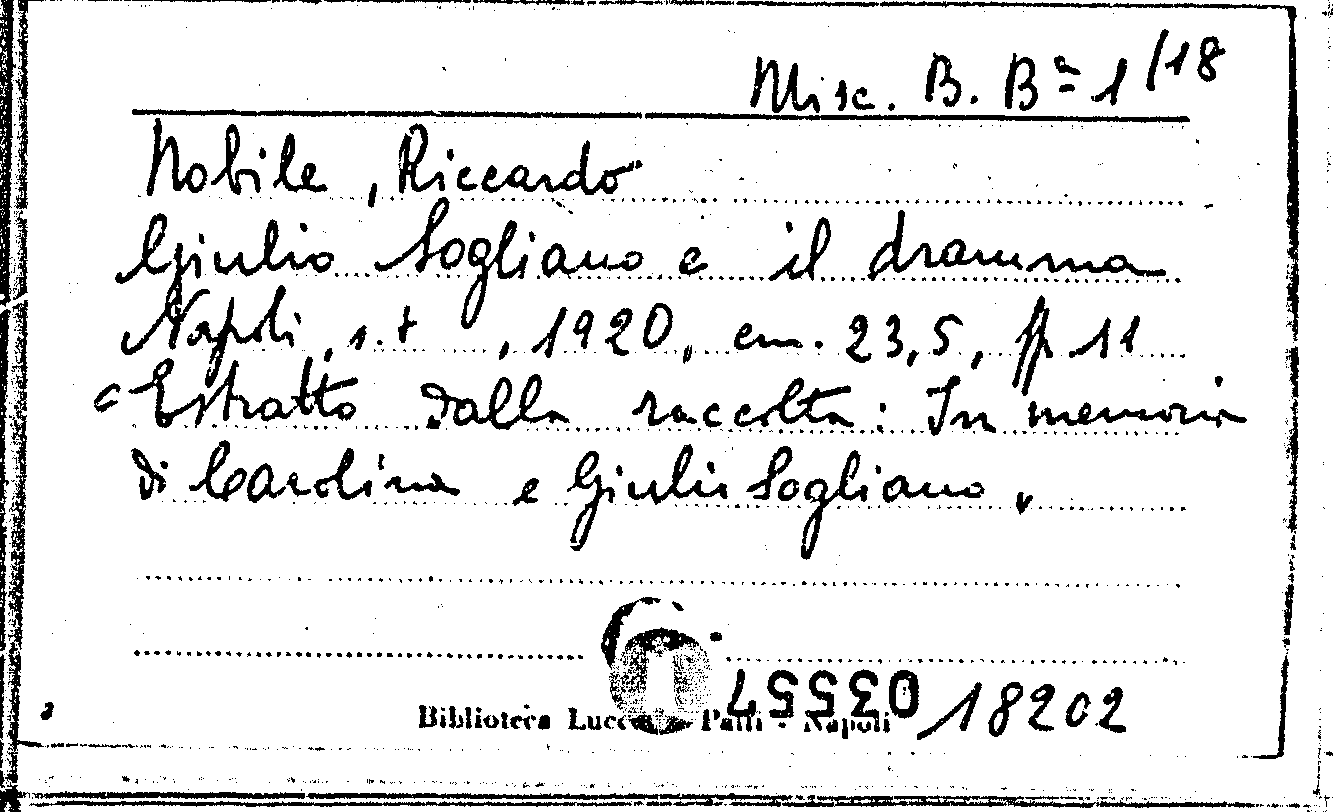 Misc. B. Bª 1/18
Nobile, Riccardo
Giulio Sogliano e il dramma
Napoli, s.t, 1920, cm. 23,5, pp 11
Estratto dalla raccolta: In memoria
di Carolina e Giulio Sogliano
03557
18202
Biblioteca Palli - Napoli